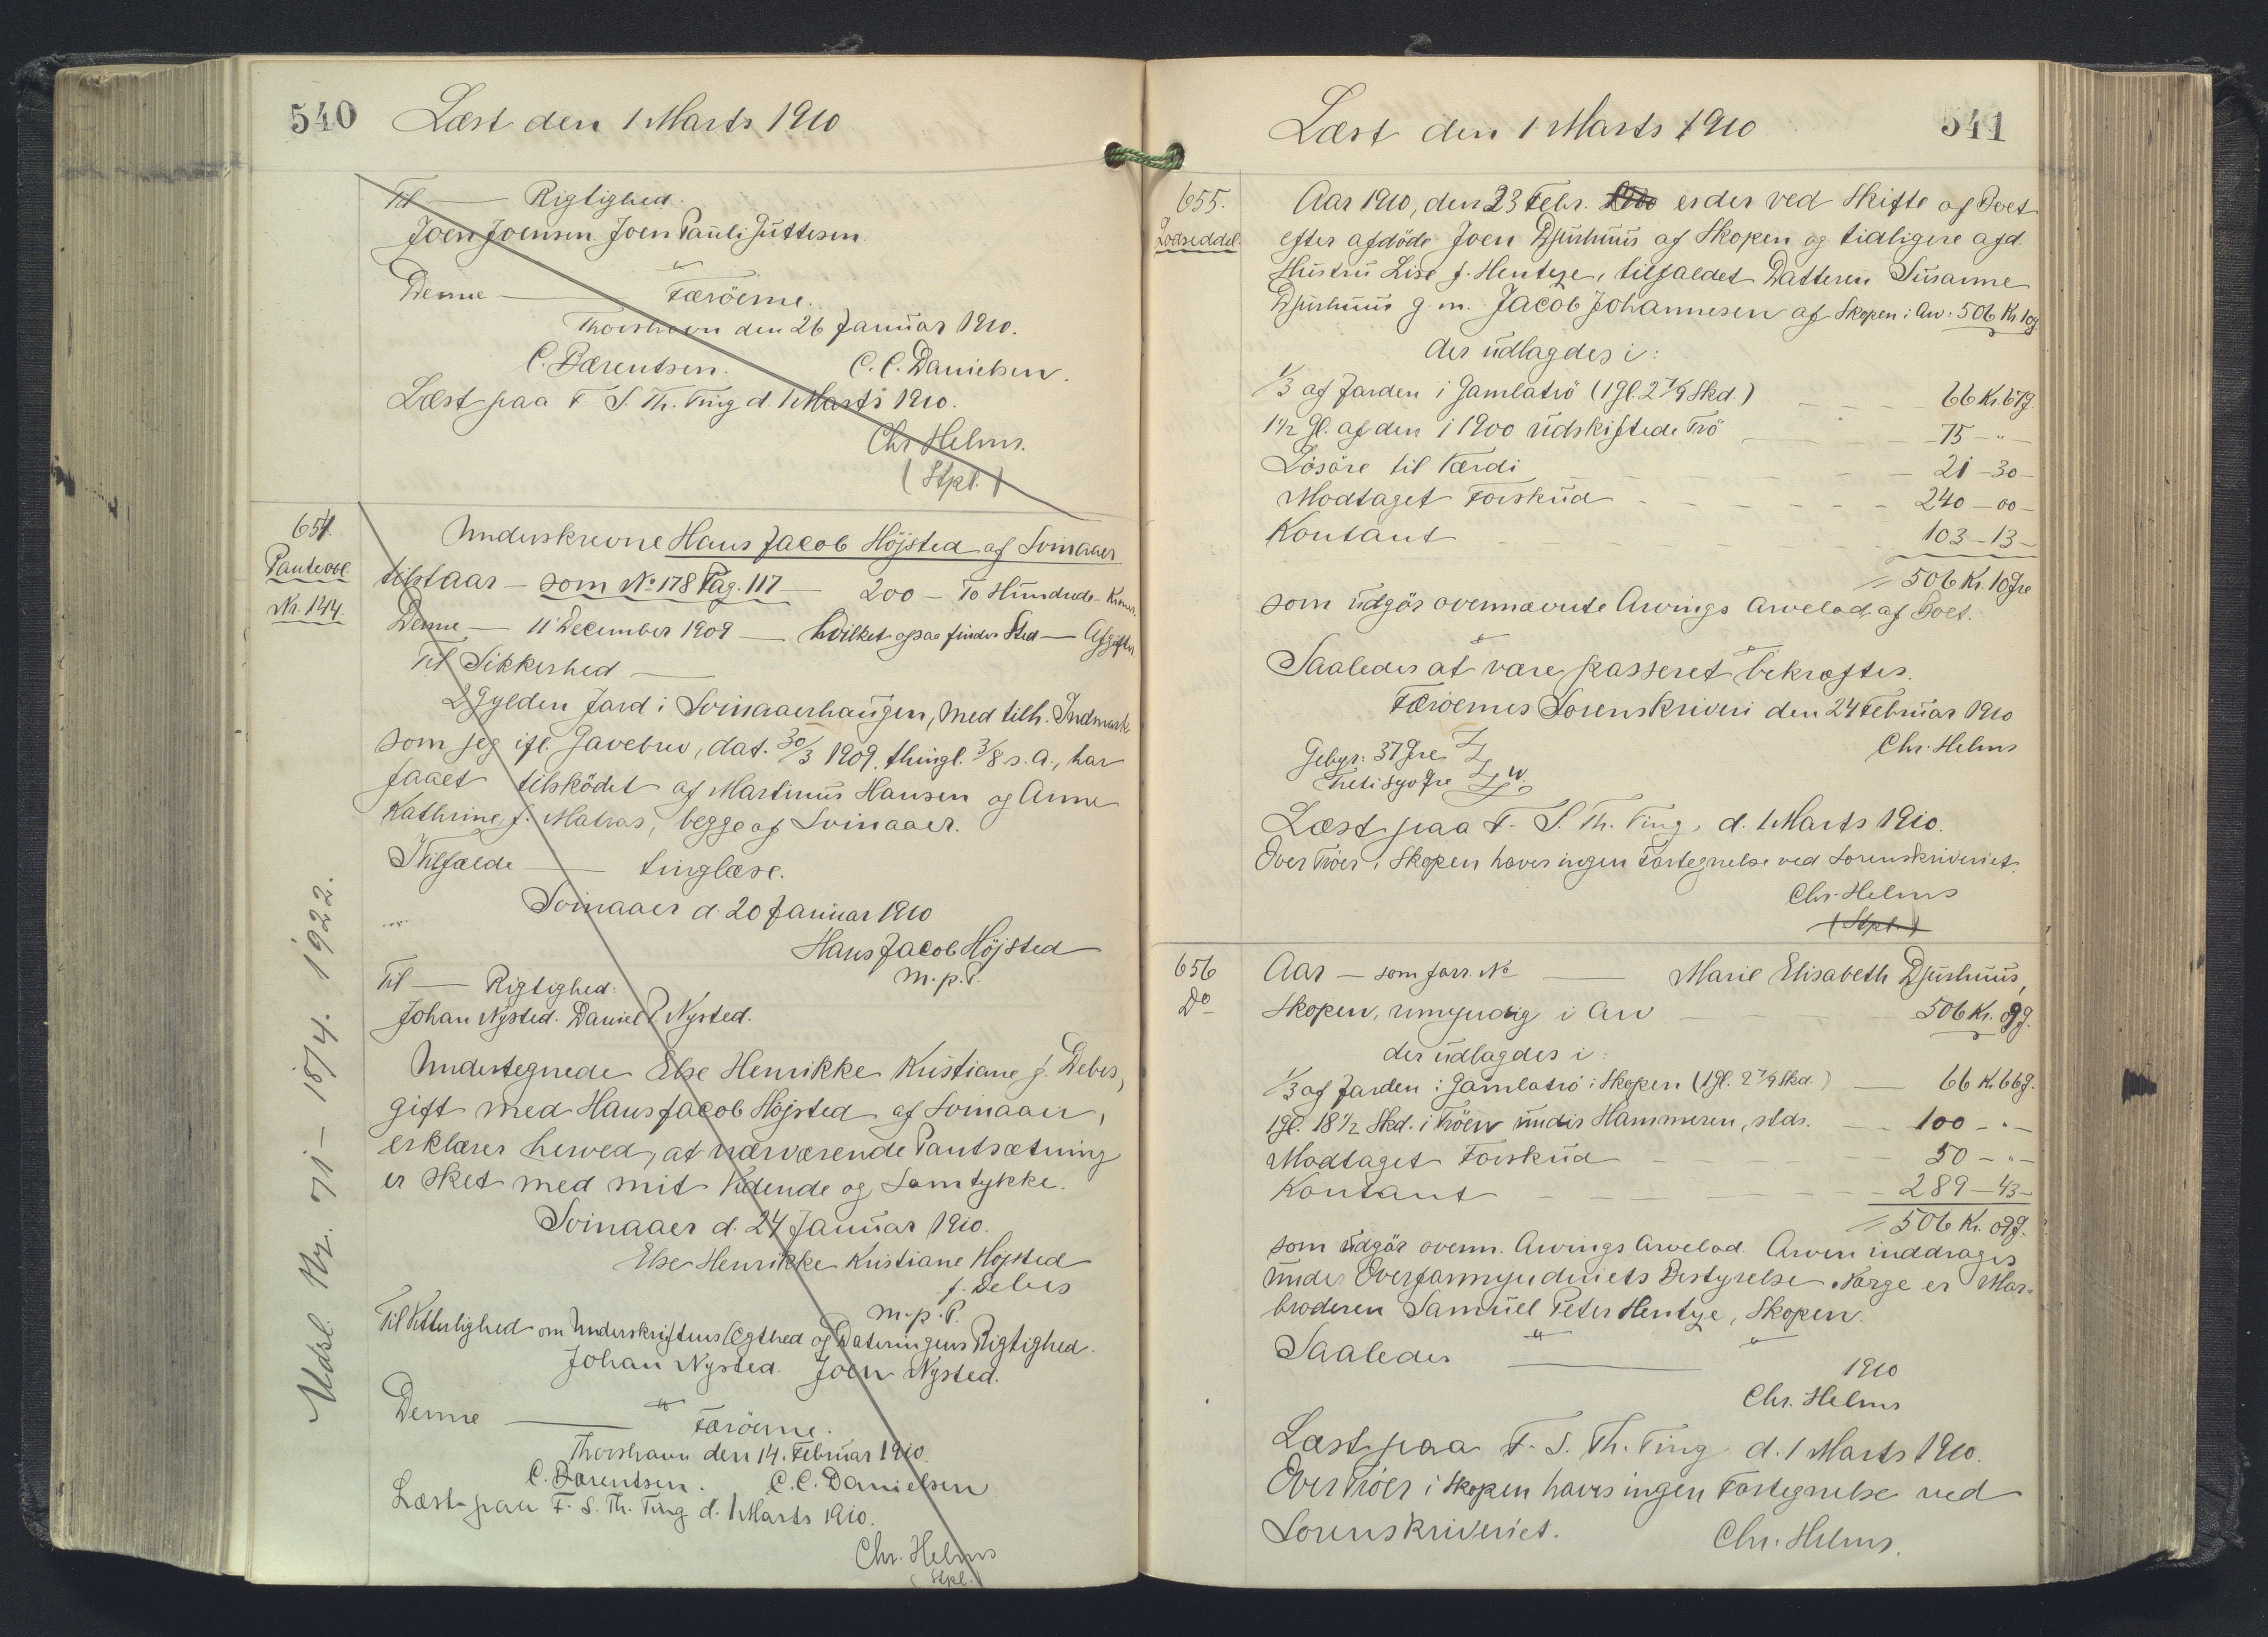 540 Læst den 1 Marts 1910
Til — Rigtighed.
Joen Joensen Joen Pauli Guttesen.
Denne — " Færöerne.
Thorshavn den 26 Januar 1910.
C. Bærentsen. C. C. Danielsen.
Læst paa F. S. Th. Ting d. 1 Marts 1910.
Chr Helms.
(Stpl.)
654.
Panteobl.
Nr. 144.
Underskrevne Hans Jacob Höjsted af Svinaaer
tilstaar — som No 178 Pag. 117 — 200 — To Hundrede — Kroner.
Denne — 11 December 1909 — hvilket ogsaa finder Sted — Afgifter
Til Sikkerhed —
2 Gylden Jord i Svinaaerhaugen, med tilh. Indmark
som jeg ifl. Gavebrev, dat. 30/3 1909. thingl. 3/8 s. A., har
faaet tilsködet af Martinus Hansen og Anne
Kathrine f. Matras, begge af Svinaaer.
I Tilfælde — tinglæse.
Svinaaer d. 20 Januar 1910
Hans Jacob Höjsted
m. p. P.
Til — Rigtighed:
Johan Nysted. Daniel P Nysted.
Undertegnede Else Henrikke Kristiane f. Debes,
gift med Hans Jacob Höjsted af Svinaaer,
erklærer herved, at nærværende Pantsætning
er sket med mit Vidende og Samtykke.
Svinaaer d. 24 Januar 1910.
Else Henrikke Kristiane Höjsted
f. Debes
m. p. P.
Til Vitterlighed om Underskriftens Ægthed og Dateringens Rigtighed.
Johan Nysted. Joen Nysted.
Denne — " Færöerne.
Thorshavn den 14. Februar 1910.
C. Bærentsen. C. C. Danielsen
Læst paa F. S. Th. Ting d. 1 Marts 1910.
Chr. Helms
(Stpl.)
Udsl. Nr. 71 - 18/4. 1922.
Læst den 1 Marts 1910 541
655.
Lodseddel.
Aar 1910, den 23 Febr. er der ved Skifte af Boet
efter afdöde Joen Djurhuus af Skopen og tidligere afd.
Hustru Lise f. Hentze, tilfaldet Datteren Susanne
Djurhuus g. m. Jacob Johannesen af Skopen i Arv: 506 Kr 10 g.
der udlagdes i:
1/3 af Jorden i Gamlatrö (1 gl. 2 7/9 Skd.) — 66 Kr. 67 g.
1 1/2 Gl. af den i 1900 udskiftede Trö — 75 — " —
Lösöre til Værdi — 21 — 30 —
Modtaget Forskud — 240 — 00 —
Kontant — 103 — 13 —
= 506 Kr. 10 Øre
som udgör ovennævnte Arvings Arvelod af Boet.
Saaledes at være passeret bekræftes.
Færöernes Sorenskriveri den 24 Februar 1910
Chr. Helms
Gebyr: 37 Øre
Treti syv Øre
Læst paa F. S. Th. Ting, d. 1 Marts 1910.
Over Tröer i Skopen haves ingen Fortegnelse ved Sorenskriveriet.
Chr. Helms
(Stpl.)
656
Do
Aar — som forr. No — Marie Elisabeth Djurhuus,
Skopen, umyndig i Arv — 506 Kr. 09 g.
der udlagdes i:
1/3 af Jorden i Gamlatrö i Skopen (1 gl. 2 7/9 Skd.) — 66 Kr. 66 g.
1 gl. 18 1/2 Skd. i Tröen under Hammeren, stds. — 100 — " —
Modtaget Forskud — 50 — " —
Kontant — 289 — 43 —
= 506 Kr. 09 g.
som udgör ovenn. Arvings Arvelod. Arven inddrages
under Overformynderiets Bestyrelse. Værge er Mor-
broderen Samuel Peter Hentze, Skopen.
Saaledes — 1910
Chr. Helms
Læst paa F. S. Th. Ting d. 1 Marts 1910.
Over Tröer i Skopen haves ingen Fortegnelse ved
Sorenskriveriet. Chr. Helms.